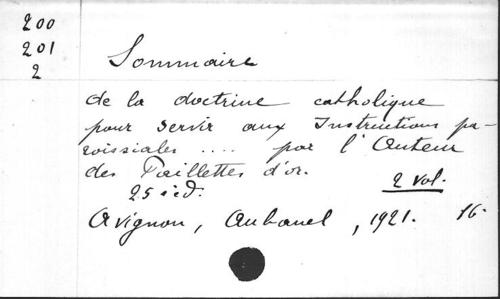 200
201
2
Sommaire
de la doctrine catholique
pour servir aux Instructions pa-
roissiales .... par l'Auteur
des Paillettes d'or.
25 éd. 2 vol.
Avignon, Aubanel, 1921. 16.